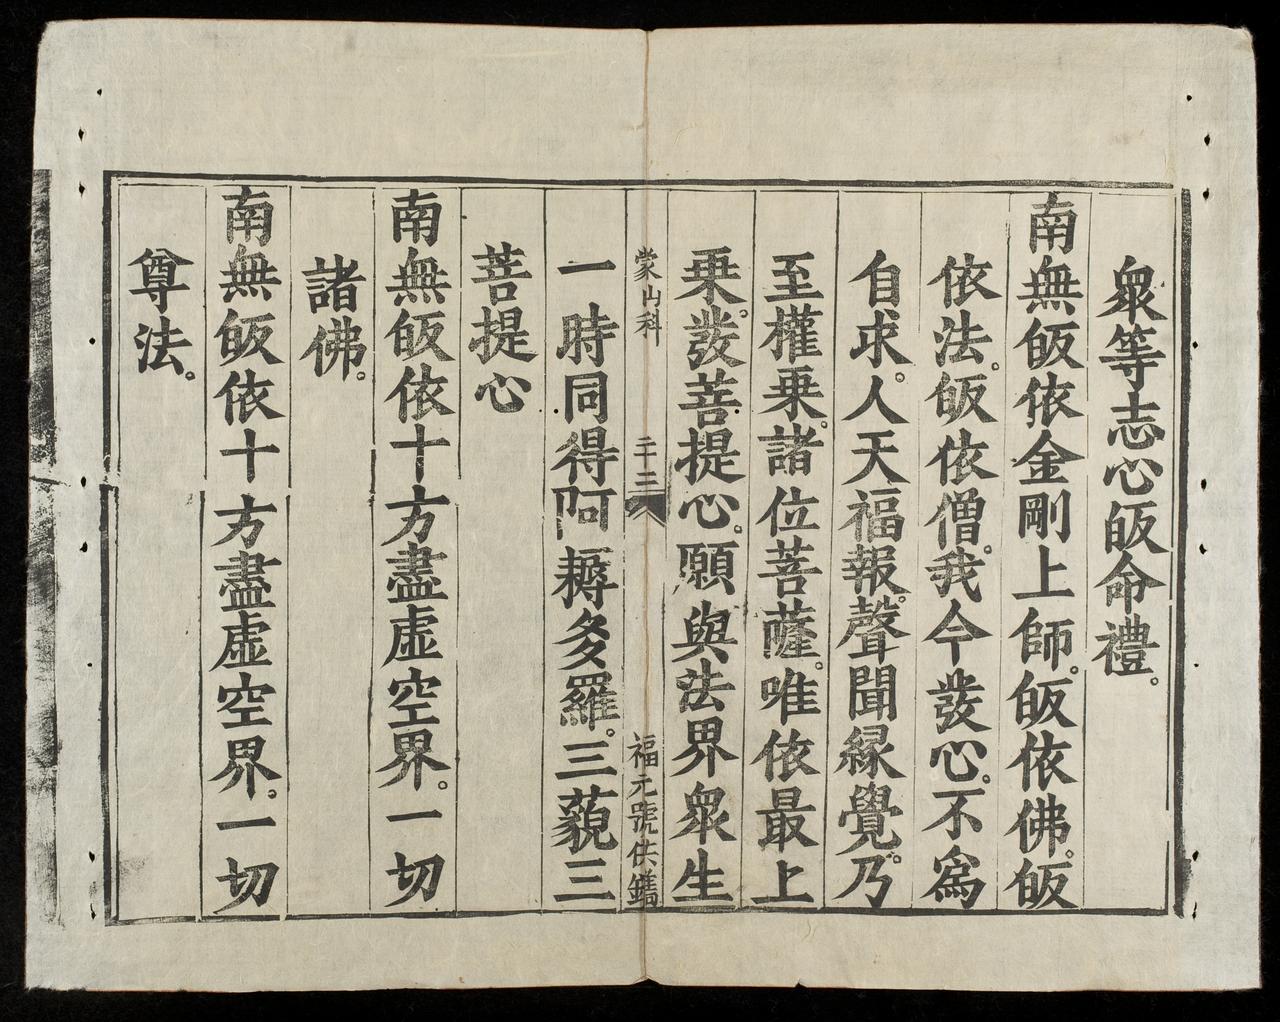 衆等志心皈命禮。
南無皈依金剛上師。皈依佛。皈
依法。皈依僧。我今發心。不爲
自求。人天福報。聲聞緣覺。乃
至權乗。諸位菩薩。唯依最上
乗。發菩提心。願與法界衆生
蒙山科 二十三 福元號供鐫
一時同得阿耨多羅。三藐三
菩提心
南無皈依十方盡虛空界。一切
諸佛。
南無皈依十方盡虛空界。一切
尊法。